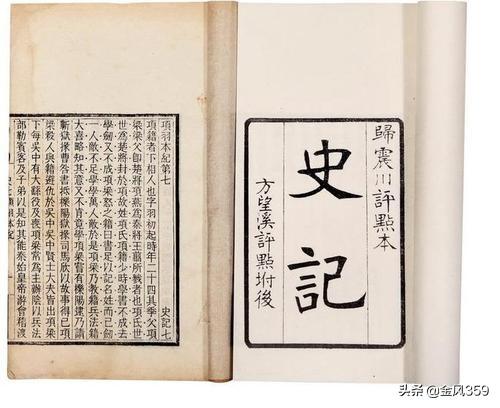 歸震川評點本
史記
方望溪評點坿後
項羽本紀第七 史記七
項籍者下相人也字羽初起時年二十四其季父項
梁梁父卽楚將項燕為秦將王翦所戮者也項氏世
世為楚將封於項故姓項氏項籍少時學書不成去
學劍又不成項梁怒之籍曰書足以記名姓而已劍
一人敵不足學學萬人敵於是項梁乃教籍兵法籍
大喜略知其意又不肯竟學項梁嘗有櫟陽逮乃請
蘄獄掾曹咎書抵櫟陽獄掾司馬欣以故事得已項
梁殺人與籍避仇於吳中吳中賢士大夫皆出項梁
下每吳中有大繇役及喪項梁常為主辦陰以兵法
部勒賓客及子弟以是知其能秦始皇帝游會稽渡
头条 @金风359